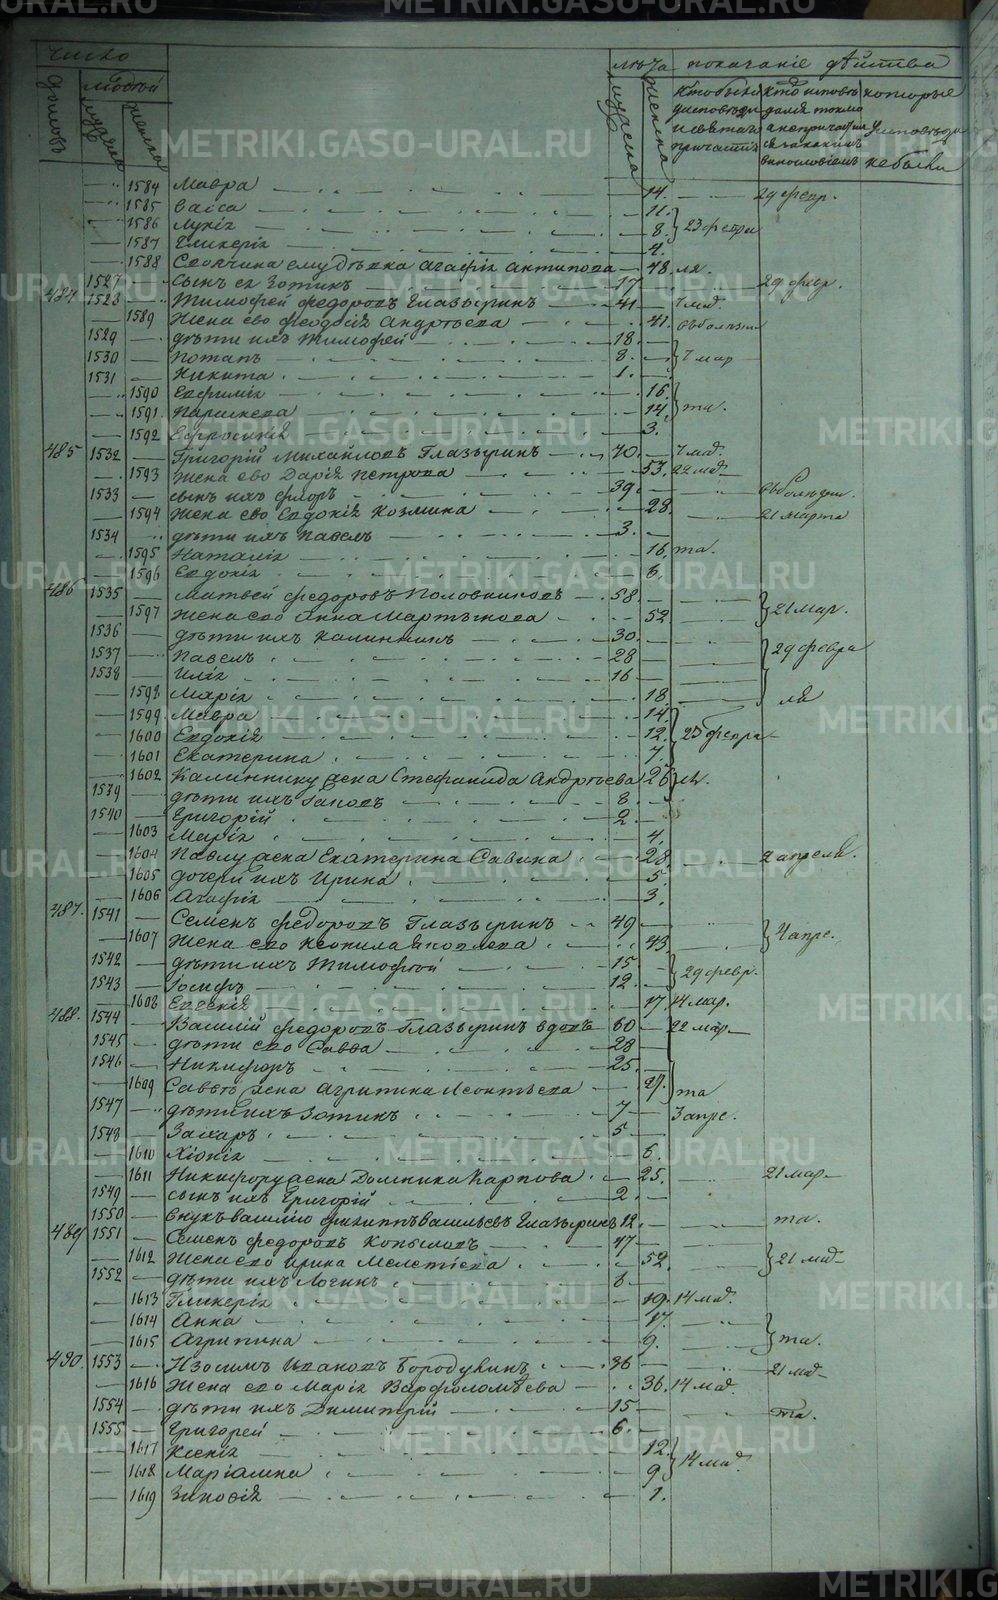 число лѣта показаніе дѣйства
домовъ людей мужеска женска Кто были у исповѣди и святаго причастія Кто исповѣдался токмо а не причастился и за какимъ винословіемъ которые у исповѣди не были
мужска женска
1584 Мавра 14. 29 февр.
1585 Васса 11.
1586 Лукія 8. 23 февра
1587 Гликерія 4.
1588 Агафія Антипова 48. ля.
1527 сынъ ея Зотикъ 17 29 февр.
484. 1528 Тимофей Федоровъ Глазыринъ 41 7 мар.
1589 Жена ево Феодосія Андрѣева 41.
1529 дѣти ихъ Тимофей 18.
1530 Потапъ 8. 7 мар
1531 Никита 1.
1590 Евфимія 16.
1591 Параскева 14. та.
1592 Евфросинія 3.
485 1532 Григорій Михайловъ Глазыринъ 70. 7 мар.
1593 Жена ево Дарія Петрова 53. 22 мар
1533 сынъ ихъ Флоръ 39.
1594 Жена ево Евдокія Козмина 28. 21 марта
1534 дѣти ихъ Павелъ 3.
1595 Наталія 16. та.
1596 Евдокія 6.
486 1535 Матвей Федоровъ Половниковъ 58.
1597 Жена ево Анна Мартынова 52 21 мар.
1536 дѣти ихъ Калинникъ 30.
1537 Павелъ 28 29 февра
1538 Илія 16
1598 Марія 18 ля
1599 Мавра 14.
1600 Евдокія 12. 23 февра
1601 Екатерина 7
1602 Калиннику жена Стефанида Андрѣева 26 ля.
1539 дѣти ихъ 8.
1540 Григорій 2.
1603 Марія 4.
1604 Павлу жена Екатерина Савина 28 2 апреля.
1605 дочери ихъ Ирина 5.
1606 Агафія 3.
487. 1541 Семенъ Федоровъ Глазыринъ 49
1607 Жена ево Неонила 43 4 апре.
1542 дѣти ихъ Тимофей 15
1543 Іосифъ 12. 29 февр.
1608 Евгенія 17 14 мар.
488. 1544 Василій Федоровъ Глазыринъ вдовъ 60 22 мар
1545 дѣти ево Савва 28
1546 Никифоръ 25.
1609 Саввѣ жена Агрипина Леонтьева 27. та
1547 дѣти ихъ Зотикъ 7 3 апре.
1548 Захаръ 5
1610 Хіонія 6.
1611 Никифору жена Домника Карпова 25. 21 мар
1549 сынъ ихъ Григорій 2.
1550 внукъ Василію Филиппъ Васильевъ Глазыринъ 12. та.
489 1551 Семенъ Федоровъ Копыловъ 47
1612 Жена ево Ирина Мелетіева 52. 21 мар
1552 дѣти ихъ Логинъ 8
1613 Гликерія 19. 14 мар.
1614 Анна 17.
1615 Агрипина 9. та.
490. 1553 Изосимъ Ивановъ Бородухинъ 36 21 мар
1616 Жена ево Марія Варфоломѣева 36. 14 мар.
1554 дѣти ихъ Димитрій 15 та.
1555 Григорей 6.
1617 Ксенія 12.
1618 Маріамна 9 14 мар.
1619 Зиновія 1.
METRIKI.GASO-URAL.RU